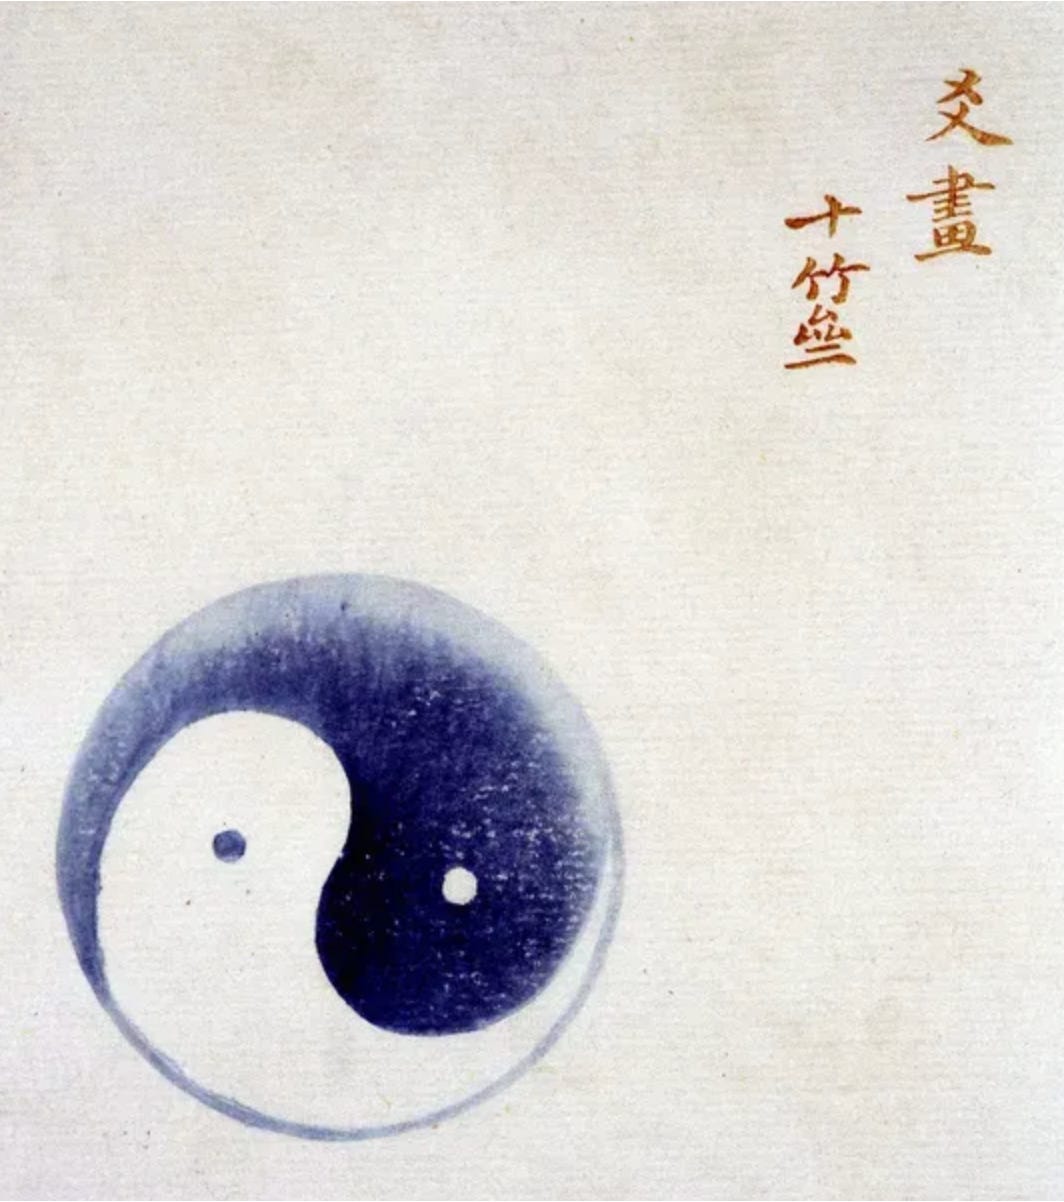 爻畫
十竹亝